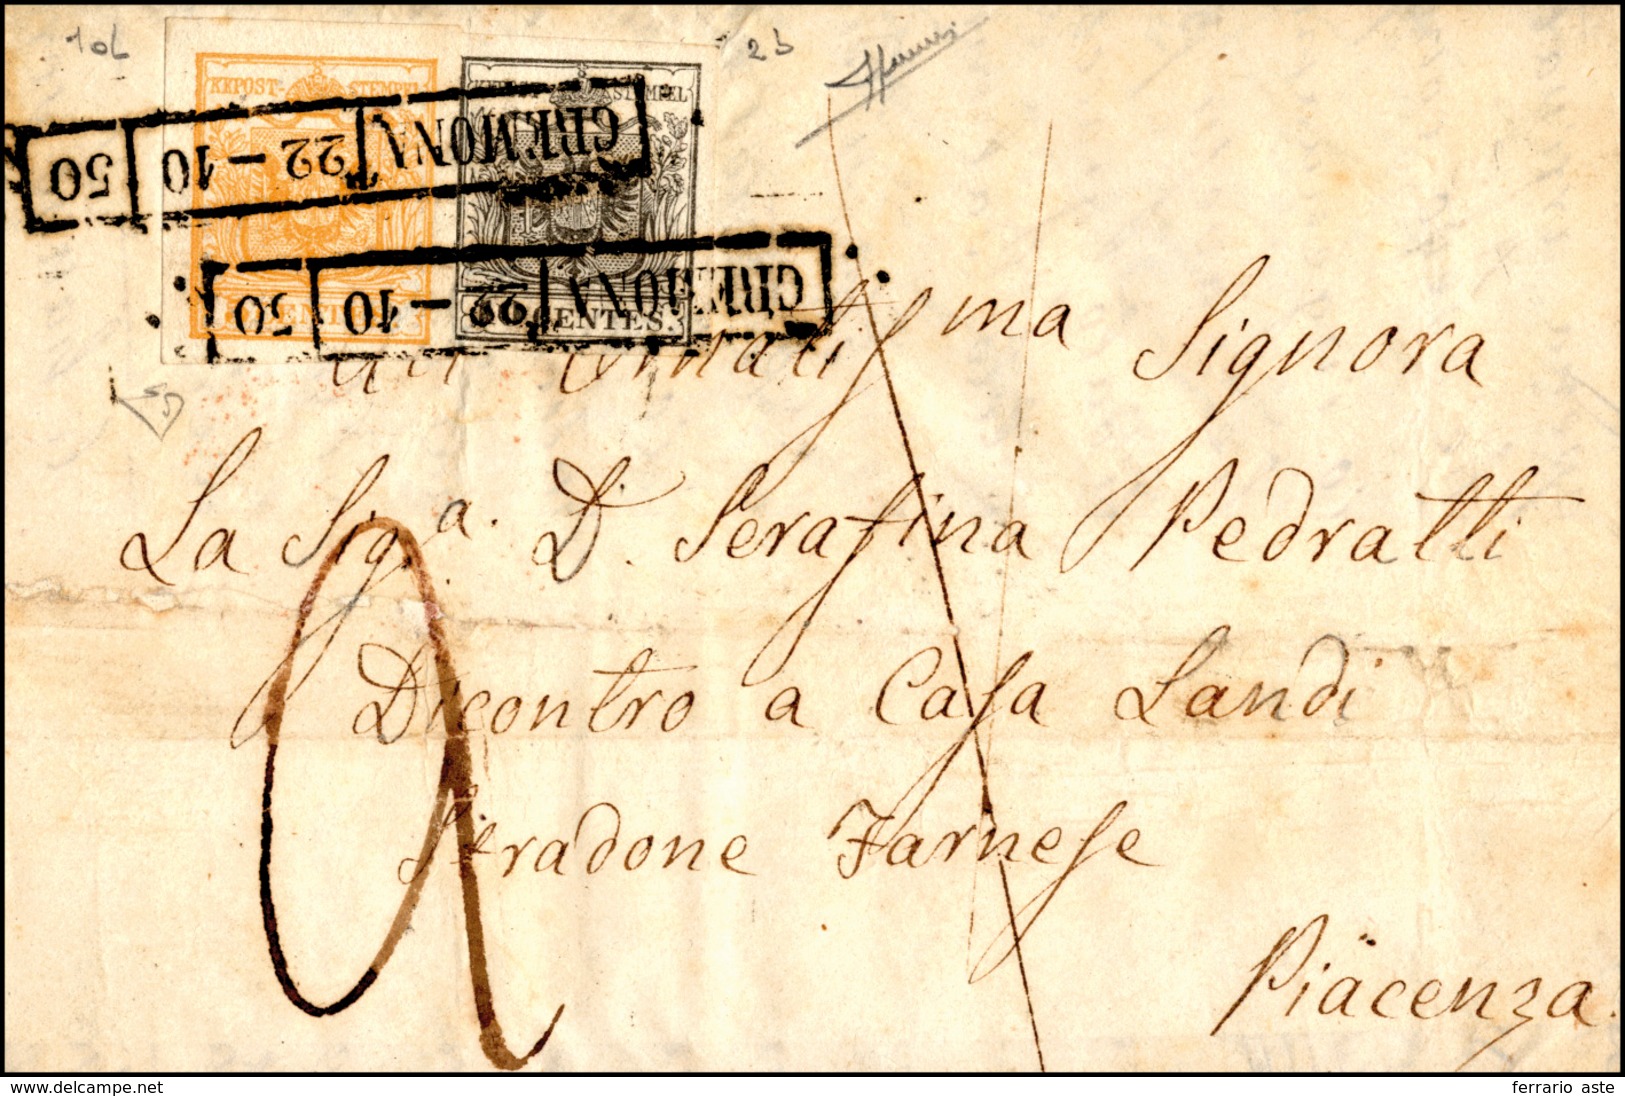 10b
2b
KKPOST-STEMPEL
KKPOST-STEMPEL
CREMONA 22-10 50
CREMONA 22-10 50
CENTES.
ma Signora
La Sig.a D. Serafina Pedratti
Dicontro a Casa Landi
Stradone Farnese
Piäcenza.
www.delcampe.net
ferrario aste